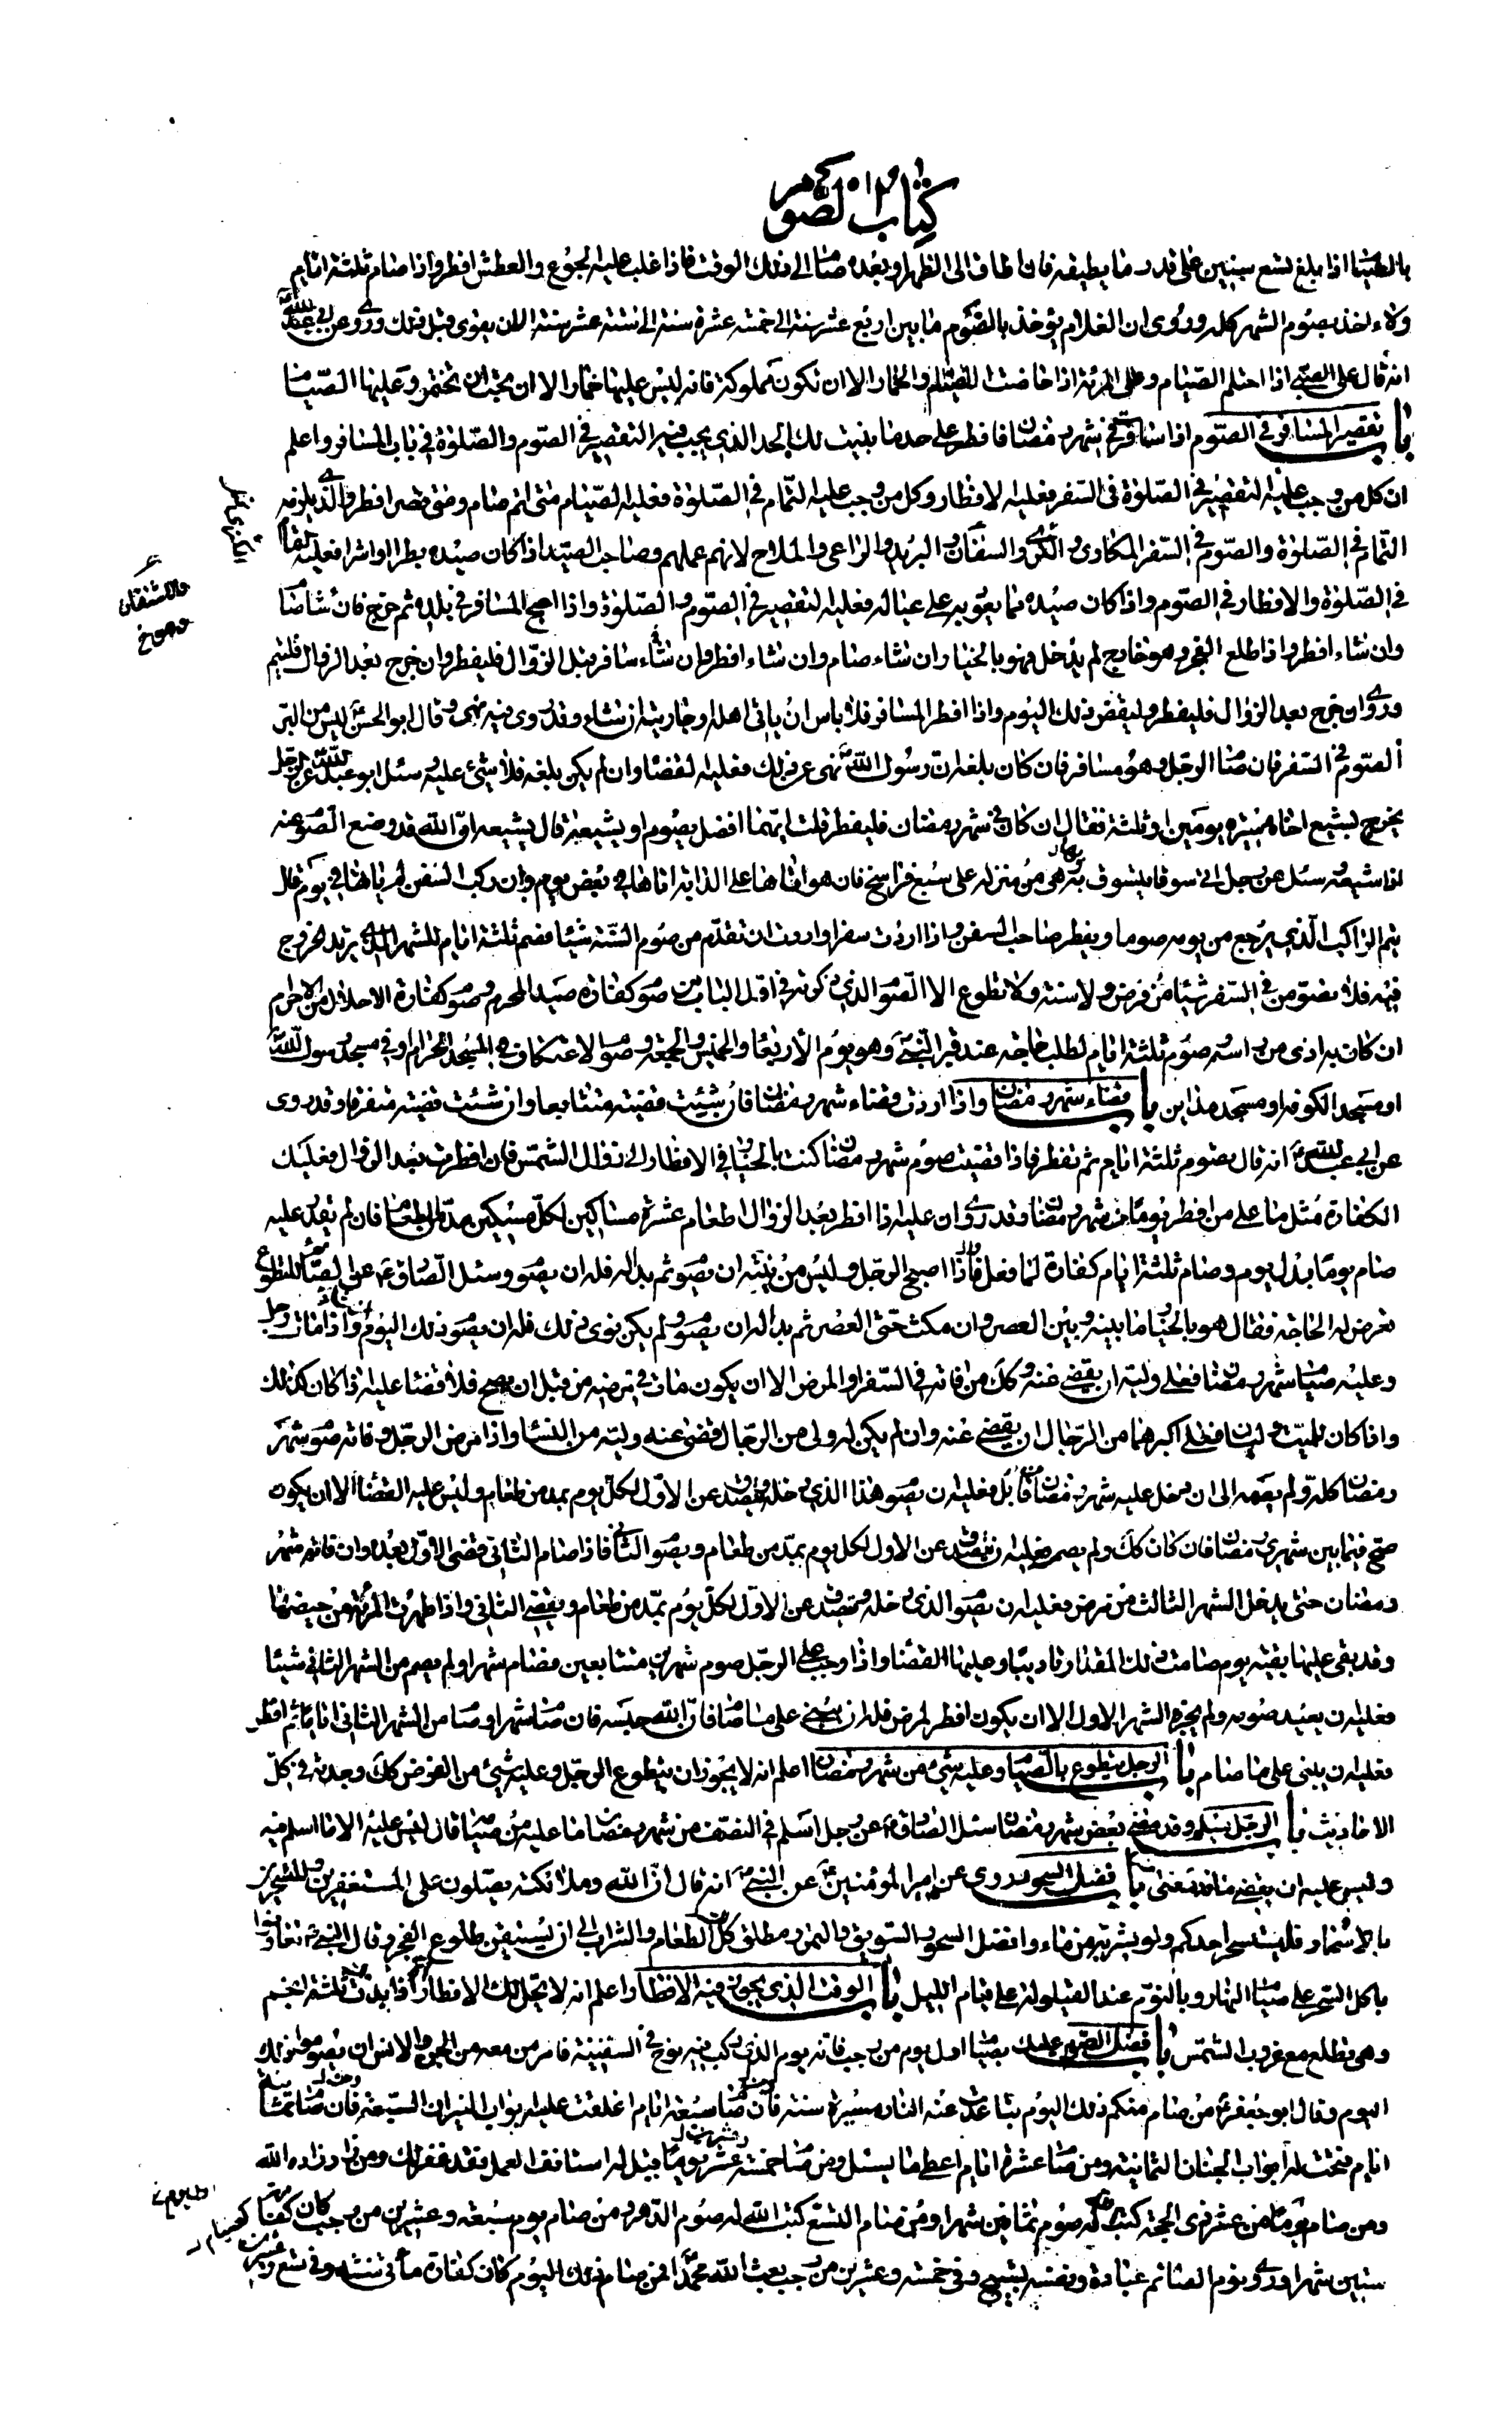 كتاب الصوم
بالصيام اذا بلغ تسع سنين على قدر ما يطيقه فان اطاق الى الظهر او بعده صام الى ذلك الوقت فاذا غلب عليه الجوع والعطش افطر واذا صام ثلثة ايام
ولاء اخذ بصوم الشهر كله وروى ان الغلام يؤخذ بالصوم ما بين اربع عشر سنة الى خمسة عشرة سنة الى ستة عشر سنة الا ان يقوى قبل ذلك وروى عن ابي عبد الله
انه قال على الصبي اذا احتلم الصيام وعلى المرئة اذا حاضت الصيام والخمار الا ان تكون مملوكة فانه ليس عليها خمار الا ان تحب ان تختمر وعليها الصيام
باب تقصير المسافر في الصوم اذا سافرت في شهر رمضان فافطر على حد ما بينت لك الحد الذي يجب فيه التقصير في الصوم والصلوة في باب المسافر واعلم
ان كل من وجب عليه التقصير في الصلوة في السفر فعليه الافطار وكل من وجب عليه التمام في الصلوة فعليه الصيام متى اتم صام ومتى قصر افطر والذي يلزمه
التمام في الصلوة والصوم في السفر المكاري والكرى والسفان والبريد والراعي والملاح لانه عملهم وصاحب الصيد اذا كان صيده بطرا او اشرا فعليه التمام
في الصلوة والافطار في الصوم واذا كان صيده مما يعود به على عياله فعليه التقصير في الصوم والصلوة واذا اصبح المسافر في بلده ثم خرج فان شاء صام
وان شاء افطر واذا طلع الفجر وهو خارج لم يدخل فهو بالخيار ان شاء صام وان شاء افطر وان شاء سافر قبل الزوال فليفطر وان خرج بعد الزوال فليتم
وروى ان خرج بعد الزوال فليفطر وليقض ذلك اليوم واذا افطر المسافر فلا باس ان ياتي اهله او جاريته ان شاء وقد روى فيه نهى وقال ابو الحسن ليس من البر
الصوم في السفر فان صام الرجل وهو مسافر فان كان بلغه ان رسول الله نهى عن ذلك فعليه القضاء وان لم يكن بلغه فلا شئ عليه سئل ابو عبد الله عن رجل
يخرج يشيع اخاه مسيرة يومين او ثلثة فقال ان كان في شهر رمضان فليفطر قلت ايهما افضل يصوم او يشيعه قال يشيعه ان الله قد وضع الصوم عنه
اذا شيعه سئل عن رجل اتى سوقا يتسوق بها وهي من منزله على سبع فراسخ فان هو اتاها على الدابة اتاها في بعض يوم وان ركب السفن لم ياتها في يوم قال
يتم الراكب الذي يرجع من يومه صوما ويفطر صاحب السفن واذا اردت سفرا واردت ان تقدم من صوم السنة شيئا فصم ثلثة ايام للشهر الذي تريد الخروج
فيه فلا تصومن في السفر شيئا من فرض ولا سنة ولا تطوع الا الصوم الذي ذكرته في اول الباب من صوم كفارة صيد المحرم وصوم كفارة الاحلال من الاحرام
ان كان به اذى من راسه وصوم ثلثة ايام لطلب حاجة عند قبر النبي وهو يوم الأربعا والخميس والجمعة وصوم الاعتكاف في المسجد الحرام او في مسجد رسول الله
او مسجد الكوفة او مسجد مداين باب قضاء شهر رمضان واذا اردت قضاء شهر رمضان فان شئت قضيته متتابعا وان شئت قضيته متفرقا وقد روى
عن ابي عبد الله انه قال تصوم ثلثة ايام ثم تفطر فاذا قضيت صوم شهر رمضان كنت بالخيار في الافطار الى زوال الشمس فان افطرت بعد الزوال فعليك
الكفارة مثل ما على من افطر يوما من شهر رمضان وقد روى ان عليه اذا افطر بعد الزوال اطعام عشرة مساكين لكل مسكين مد من طعام فان لم يقدر عليه
صام يوما بدل يوم وصام ثلثة ايام كفارة لما فعل واذا اصبح الرجل وليس من نيته ان يصوم ثم بدا له فله ان يصوم وسئل الصادق عن الصائم المتطوع
تعرض له الحاجة فقال هو بالخيار ما بينه وبين العصر وان مكث حتى العصر ثم بدا له ان يصوم ولم يكن نوى ذلك فله ان يصوم ذلك اليوم واذا مات رجل
وعليه صيام شهر رمضان فعلى وليه ان يقضي عنه وكل من فاته في السفر او المرض الا ان يكون مات في مرضه من قبل ان يصح فلا قضاء عليه اذا كان كذلك
واذا كان للميت وليان فعلى اكبرهما من الرجال ان يقضي عنه وان لم يكن له ولى من الرجال قضى عنه وليه من النساء واذا مرض الرجل وفاته صوم شهر
رمضان كله ولم يصمه الى ان يدخل عليه شهر رمضان قابل فعليه ان يصوم هذا الذي دخله ويتصدق عن الاول لكل يوم بمد من طعام وليس عليه القضاء الا ان يكون
صح فيما بين شهري رمضان فان كان كك ولم يصم فعليه ان يتصدق عن الاول لكل يوم بمد من طعام ويصوم الثاني فاذا صام الثاني قضى الاول بعده وان فاته شهر
رمضان حتى يدخل الشهر الثالث من مرض فعليه ان يصوم الذي دخله ويتصدق عن الاول لكل يوم بمد من طعام ويقضي الثاني واذا طهرت المرئة من حيضها
وقد بقى عليها بقية يوم صامت ذلك المقدار تاديبا وعليها القضاء واذا وجب على الرجل صوم شهرين متتابعين فصام شهرا ولم يصم من الشهر الثاني شيئا
فعليه ان يعيد صومه ولم يجزه الشهر الاول الا ان يكون افطر لمرض فله ان يبني على ما صام فان الله حبسه فان صام شهرا وصام من الشهر الثاني اياما ثم افطر
فعليه ان يبنى على ما صام باب الرجل يتطوع بالصيام وعليه شئ من شهر رمضان اعلم انه لا يجوز ان يتطوع الرجل وعليه شئ من الفرض كك وجدته في كل
الاحاديث باب الرجل يسلم وقد مضى بعض شهر رمضان سئل الصادق عن رجل اسلم في النصف من شهر رمضان ما عليه من صيام قال ليس عليه الا ما اسلم فيه
وليس عليه ان يقضي ما قد مضى باب فضل السحور روى عن امير المؤمنين عن النبي انه قال ان الله وملائكته يصلون على المستغفرين والمتسحرين
بالاسحار فليتسحر احدكم ولو بشربة من ماء وافضل السحور السويق والتمر ومطلق لك الطعام والشراب الى ان تستيقن طلوع الفجر وقال النبي تعاونوا
باكل السحر على صيام النهار وبالنوم عند القيلولة على قيام الليل باب الوقت الذي يجوز فيه الافطار واعلم انه لا يحل لك الافطار الا اذا بدت ثلثة انجم
وهي تطلع مع غروب الشمس باب فضل الصوم عليك بصيام اول يوم من رجب فانه يوم الذي ركب فيه نوح في السفينة فامر من معه من الجن والانس ان يصوموا ذلك
اليوم وقال ابو جعفر من صام منكم ذلك اليوم تباعدت عنه النار مسيرة سنة فان صام سبعة ايام اغلقت عليه ابواب النيران السبعة فان صام ثمانية
ايام فتحت له ابواب الجنان الثمانية ومن صام عشرة ايام اعطى ما يسئل ومن صام خمسة عشر يوما قيل له استانف العمل فقد غفر لك ومن زاد زاده الله
ومن صام يوما من عشر ذى الحجة كتب الله له صوم ثمانين شهرا ومن صام التسع كتب الله له صوم الدهر ومن صام يوم سبعة وعشرين من رجب كان كصيام
ستين شهرا وروى نوم الصائم عبادة ونفسه تسبيح وفي خمسة وعشرين من رجب بعث الله محمدا فمن صام ذلك اليوم كان كفارة مأتى سنة وفي تسع وعشرين